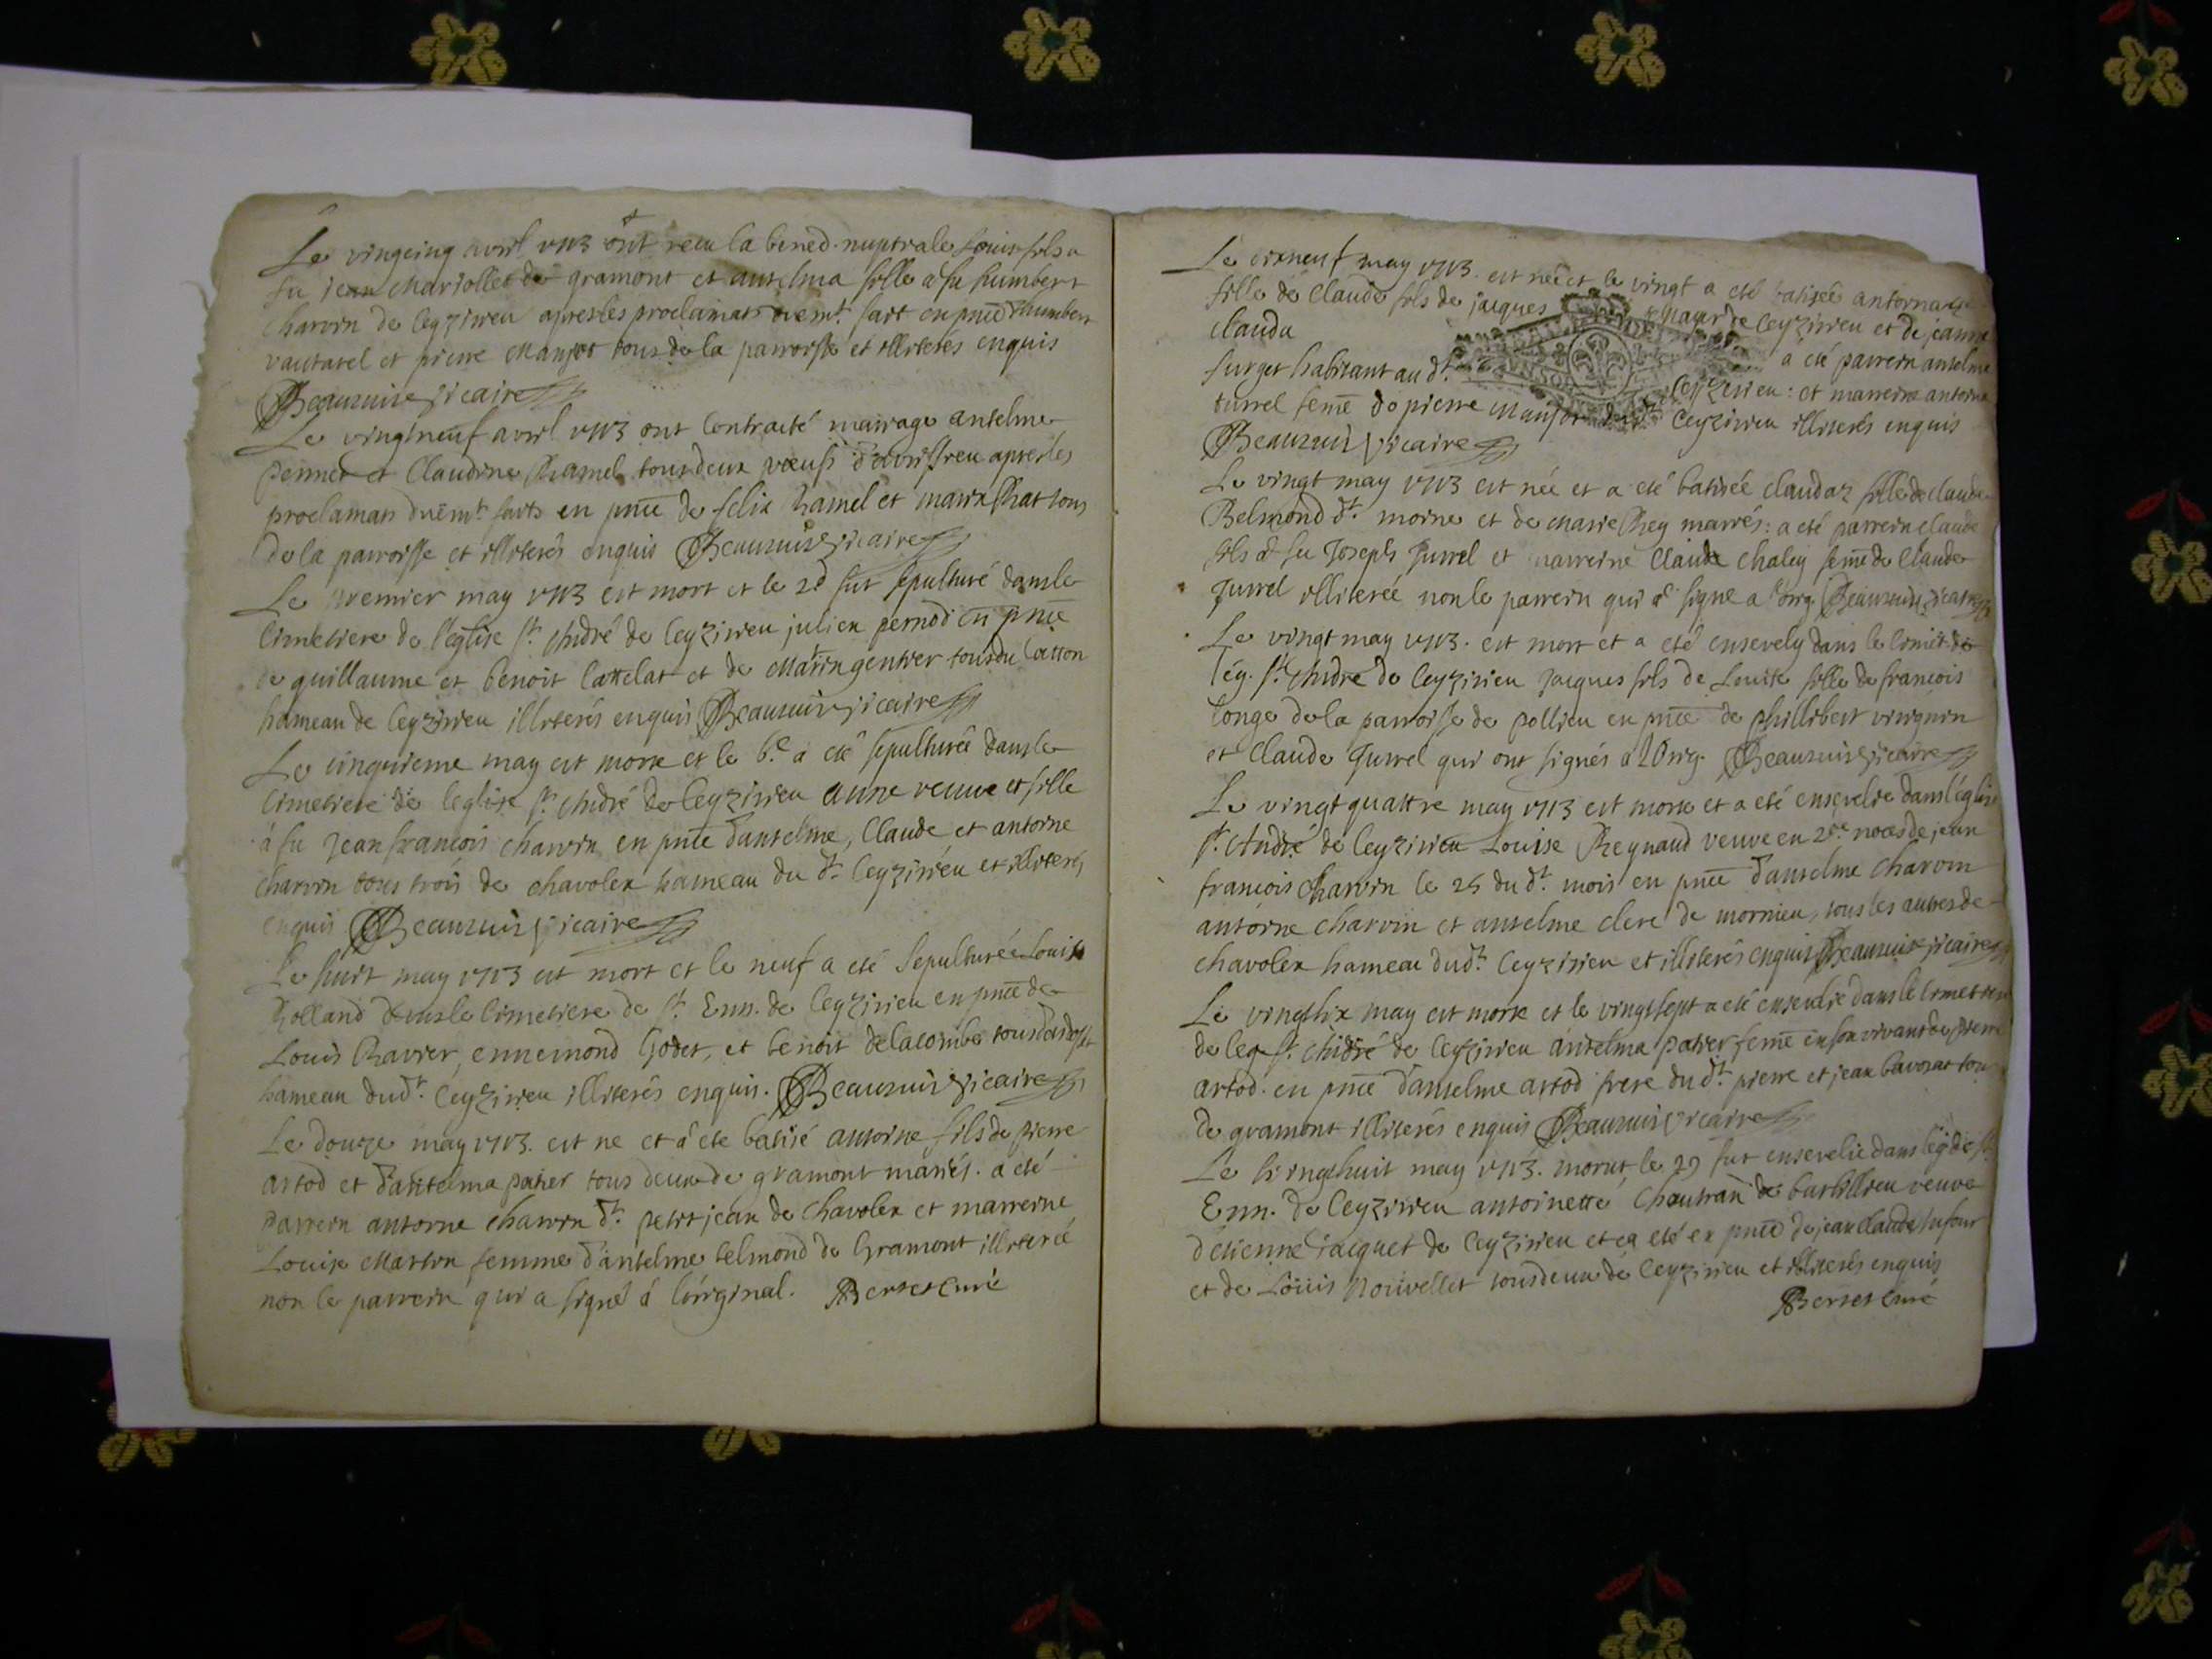 Le vingcinq avril 1713 ont receu la bened. nuptiale Louis fils a
fu jean Mariollet de gramont et anselma fille a fu humbert
charvin de Ceyzirieu apres les proclamaōns duemt. fait en pn̄ce d'humbert
vautarel et pierre Manjot tous de la parroisse et illiterés enquis
Beauzuis vicaire
Le vingtneuf avril 1713 ont contracté mairage anselme
pennet et Claudine hamel tous deux veufs d'avrissieu apres les
proclamaōns duëmt. faits en pn̄ce de felix hamel et marin Chat tous
de la parroisse et illiterés enquis Beauzuis vicaire
Le premier may 1713 est mort et le 2d fut sepulturé dans le
cimetiere de l'eglise St. André de Ceyzirieu julien pernod en pn̄ce
de guillaume et benoit Cattelat et de Marin gentier tous du Catton
hameau de Ceyzirieu illiterés enquis Beauzuis vicaire
Le cinquieme may est morte et le 6e. a eté sepulturée dans le
cimetiere de leglise St. André de Ceyzirieu anne veuve et fille
á fu Jean francois charvin en pn̄ce d'anselme, Claude et antoine
charvin tous trois de chavolex hameau du dt. Ceyzirieu et illiterés
enquis Beauzuis vicaire
Le huit may 1713 est mort et le neuf a eté Sepulturée Louise
Rolland dans le cimetiere de St. Enn. de Ceyzirieu en pn̄ce de
Louis Ravier, ennemond Godet, et benoit delacombe tous
hameau dudt. Ceyzirieu illiterés enquis. Beauzuis vicaire
Le douze may 1713. est ne et a eté batisé antoine fils de pierre
artod et d'anselma patier tous deux de gramont mariés. a eté
parrein antoine charvin dt. petit jean de chavolex et marreine
Louise Martin femme d'anselme belmond de Gramont illiterée
non le parrein qui a signé á l'original. Berset Curé
Le dixneuf may 1713. est neê et le vingt a eté batisée
fille de Claude fils de jacques de Ceyzirieu et de jeanne
clauda a été parrein anselme
furget habitant au dt. Ceyzirieu: et marreine antoine
turrel feme de pierre Manjot dudt. Ceyzirieu illiterés enquis
Beauzuis vicaire
Le vingt may 1713 est née et a eté batisée claudaz fille de claude
Belmond dt. moine et de Marie Rey mariés: a eté parrein claude
fils á fu Joseph Jurrel et marreine Claude Chaley feme de Claude
Jurrel illiterée non le parrein qui a signe a l'orig. Beauzuis vicaire
Le vingt may 1713. est mort et a eté ensevely dans le cimet. de
l'eg. St. André de Ceyzirieu Jacques fils de Louise fille de francois
Longe de la parroisse de pollieu en pn̄ce de phillibert virignin
et Claude Jurrel qui ont signés a l'Orig. Beauzuis vicaire
Le vingt quattre may 1713 est morte et a eté ensevelie dans l'église
St. André de Ceyzirieu Louise Reynaud veuve en 2de noces de jean
francois Charvin le 25 du dt. mois en pn̄ce d'anselme Charvin
antoine charvin et anselme clerc de mornieu, tous les autres de
chavolex hameau dudt. Ceyzirieu et illiterés enquis Beauzuis vicaire
Le vingtsix may est morte et le vingtsept a eté ensevelie dans le cimetiere
de leg. St. André de Ceyzirieu anselma patier feme en son vivant de pierre
artod. en pn̄ce d'anselme artod frere du dt. pierre et jean bavozat tous
de gramont illiterés enquis Beauzuis vicaire
Le vingthuit may 1713. morut, le 29 fut ensevelie dans leg. de St.
Enn. de Ceyzirieu antoinette Chautran de barbillieu veuve
d'etienne jacquet de Ceyzirieu et ça eté en pn̄ce de jean claude
et de Loüis Nouvellet tous deux de Ceyzirieu et illiterés enquis
Berset Curé